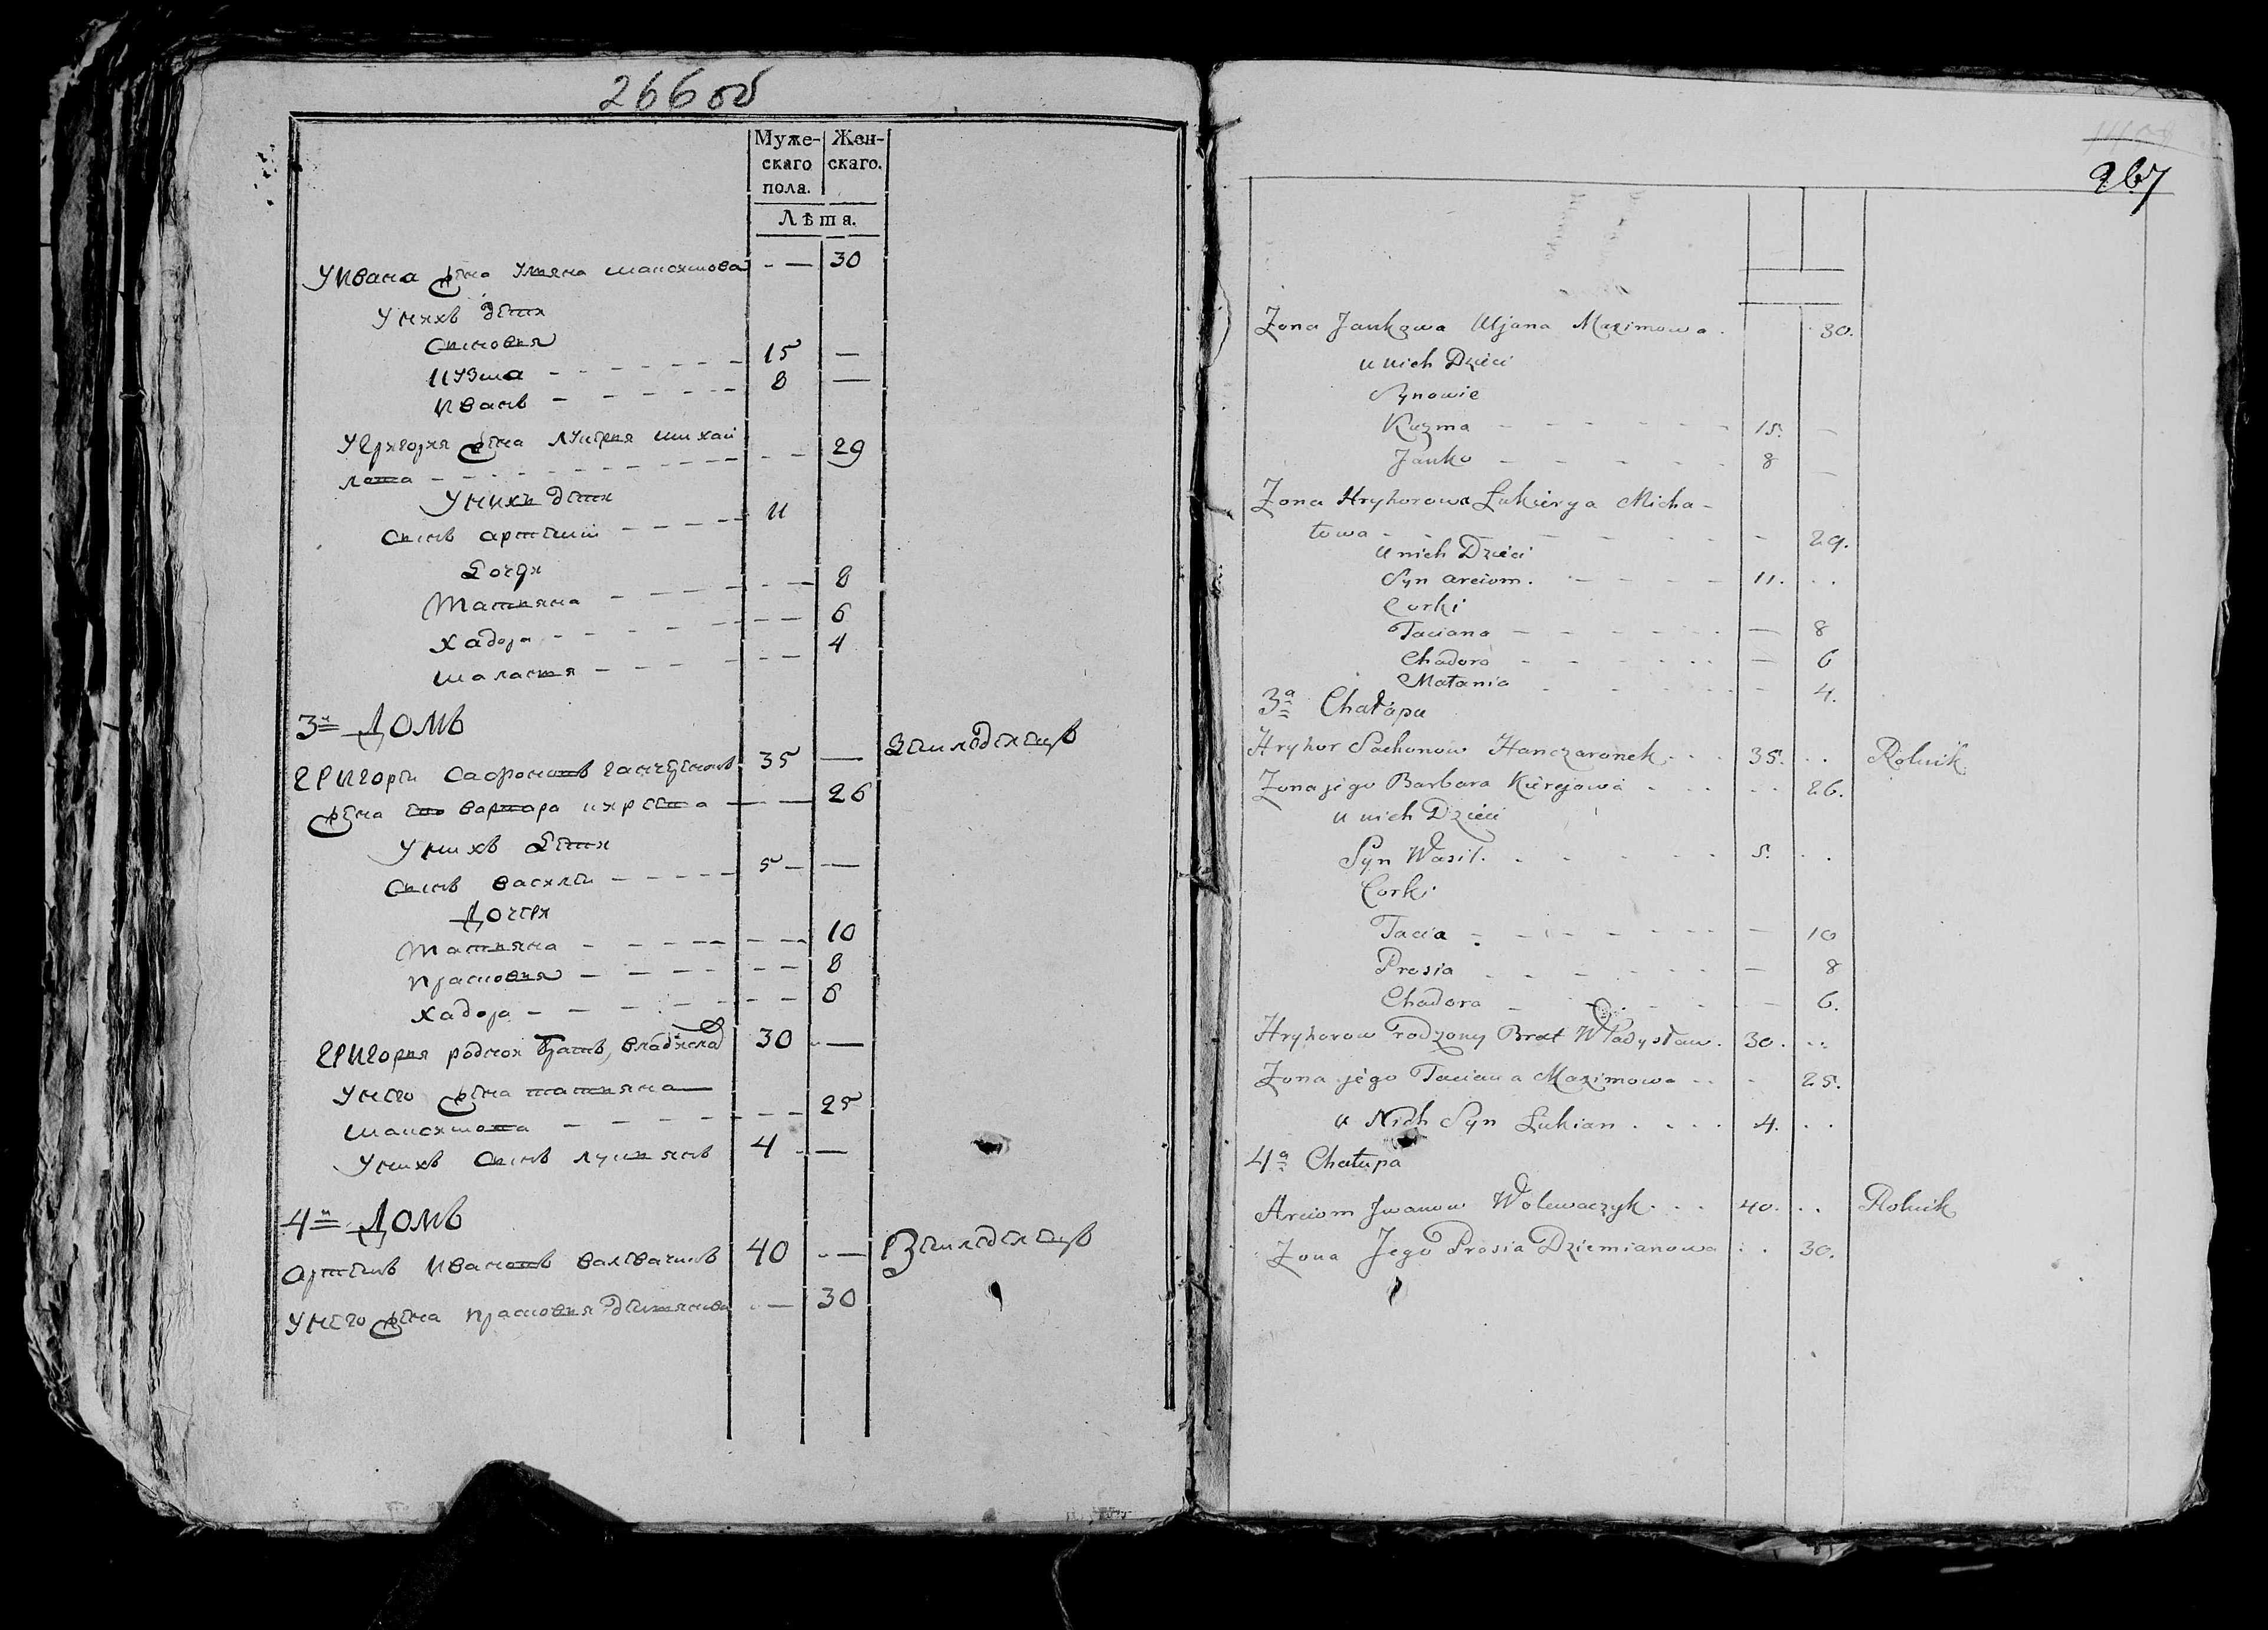 266 об
Муже-
скаго
пола.
Жен-
скаго.
Лѣта.
У Ивана жена Уляна максимова - — 30
У нихъ дети
Сыновья
Кузма - - - - - - 15 —
Иванъ - - - - - 8 —
У Григорья жена Лукерья михай
лова - - - - - - - - - 29
У нихъ дети
Сынъ артемий - - - - - 11
Дочери
Татьяна - - - - - - — 8
Хадора - - - - - - — 6
маланья - - - - - - — 4
3й Домъ
Григорей Сафоновъ ганчаронъ 35 — Земледелецъ
жена ево варвара киреева — - — 26
У нихъ Дети
Сынъ василей - - - - - 5 — —
Дочери
Татьяна - - - - - - - - 10
Прасковья - - - - - - - 8
Хадора - - - - - - - — 6
Григорья родной братъ, владислав 30 - —
У него жена татьяна
максимова - - - - - - - - 25
У нихъ Сынъ лукьянъ 4 - —
4й Домъ
Артемъ Ивановъ валевачикъ 40 - — Земледелецъ
У него жена прасковья демьянова - — 30
267
Zona Jankowa Uljana Maximowa . 30.
u nich Dzieci
Synowie
Kuzma - - - - - - - 15. —
Janko - - - - - 8 —
Zona Hryhorowa Łukierya Micha-
łowa - - - - - - - - 29.
u nich Dzieci
Syn arciom. - - - - - 11. . .
Corki
Taciana - - - - - - — 8
Chadora - - - - . . — 6
Małania - - - . . - 4.
3a Chałupa
Hryhor Sachonow Hanczaronek. . . 35. . . Rolnik
Zona jego Barbara Kierejowa . . . . . 26.
u nich Dzieci
Syn Wasil. . . - - - - 5. . .
Corki
Tacia - - - - - - - — 10
Prosia - - - - - . . — 8
Chadora - - - . - - — 6.
Hryhorow rodzony Brat Władysław. 30. . .
Zona jego Taciana Maximowa . . - 25.
u Nich Syn Łukian . . . . 4. . .
4a Chałupa
Arciom Jwanow Wolewaczyk. . . 40. . . Rolnik
Zona Jego Prosia Dziemianowa . . 30.